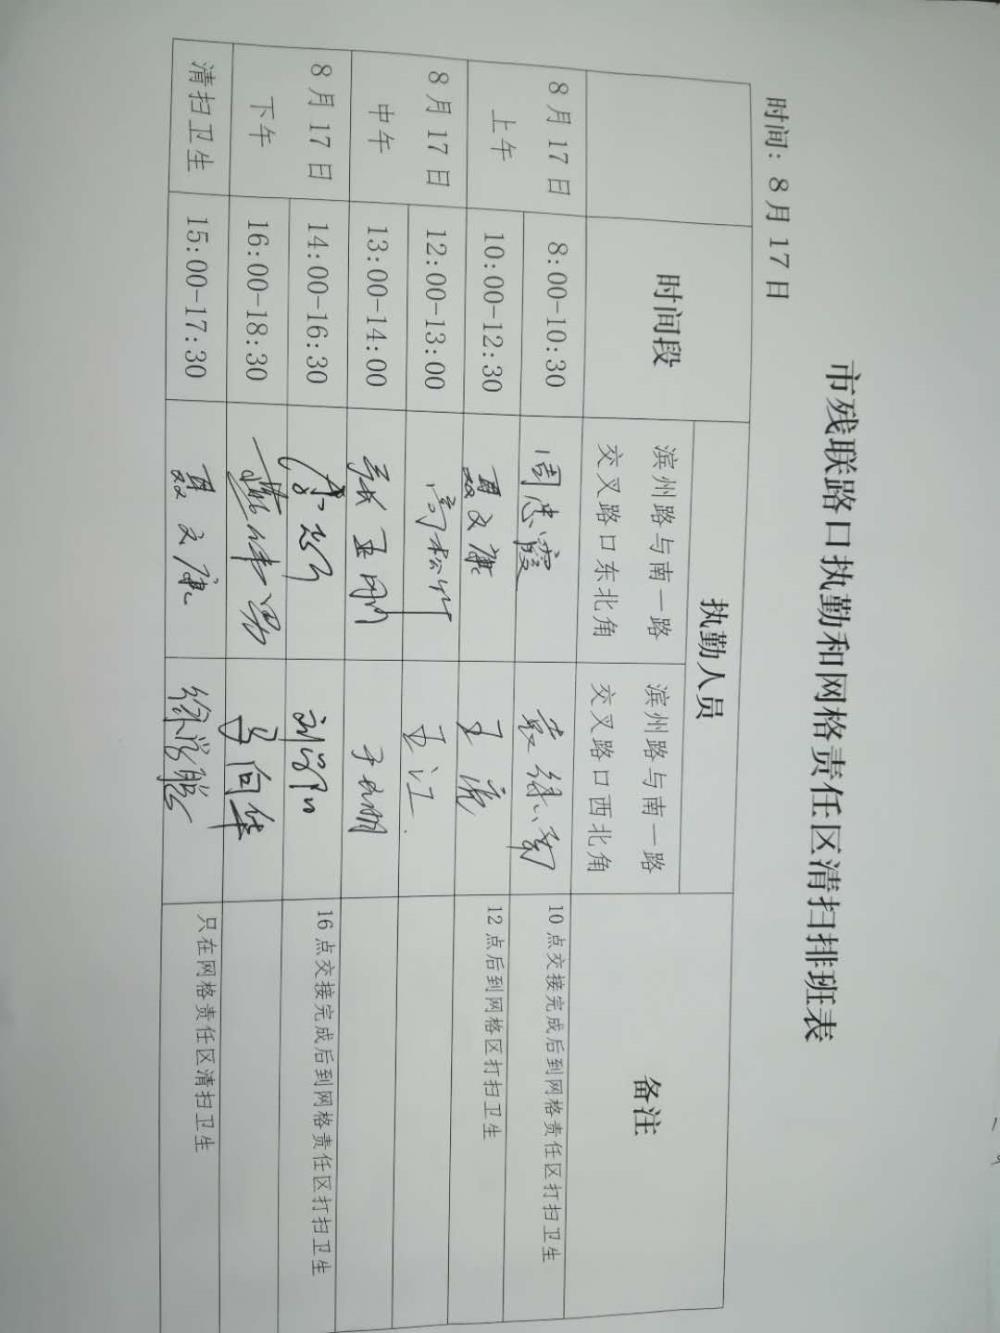 市残联路口执勤和网格责任区清扫排班表
时间：8月17日
时间段
执勤人员
备注
滨州路与南一路
交叉路口东北角
滨州路与南一路
交叉路口西北角
8月17日
上午
8:00-10:30
周忠霞
10点交接完成后到网格责任区打扫卫生
10:00-12:30
聂文康
12点后到网格区打扫卫生
8月17日
中午
12:00-13:00
王江
13:00-14:00
张亚刚
8月17日
下午
14:00-16:30
16点交接完成后到网格责任区打扫卫生
16:00-18:30
马向华
清扫卫生
15:00-17:30
聂文康
只在网格责任区清扫卫生